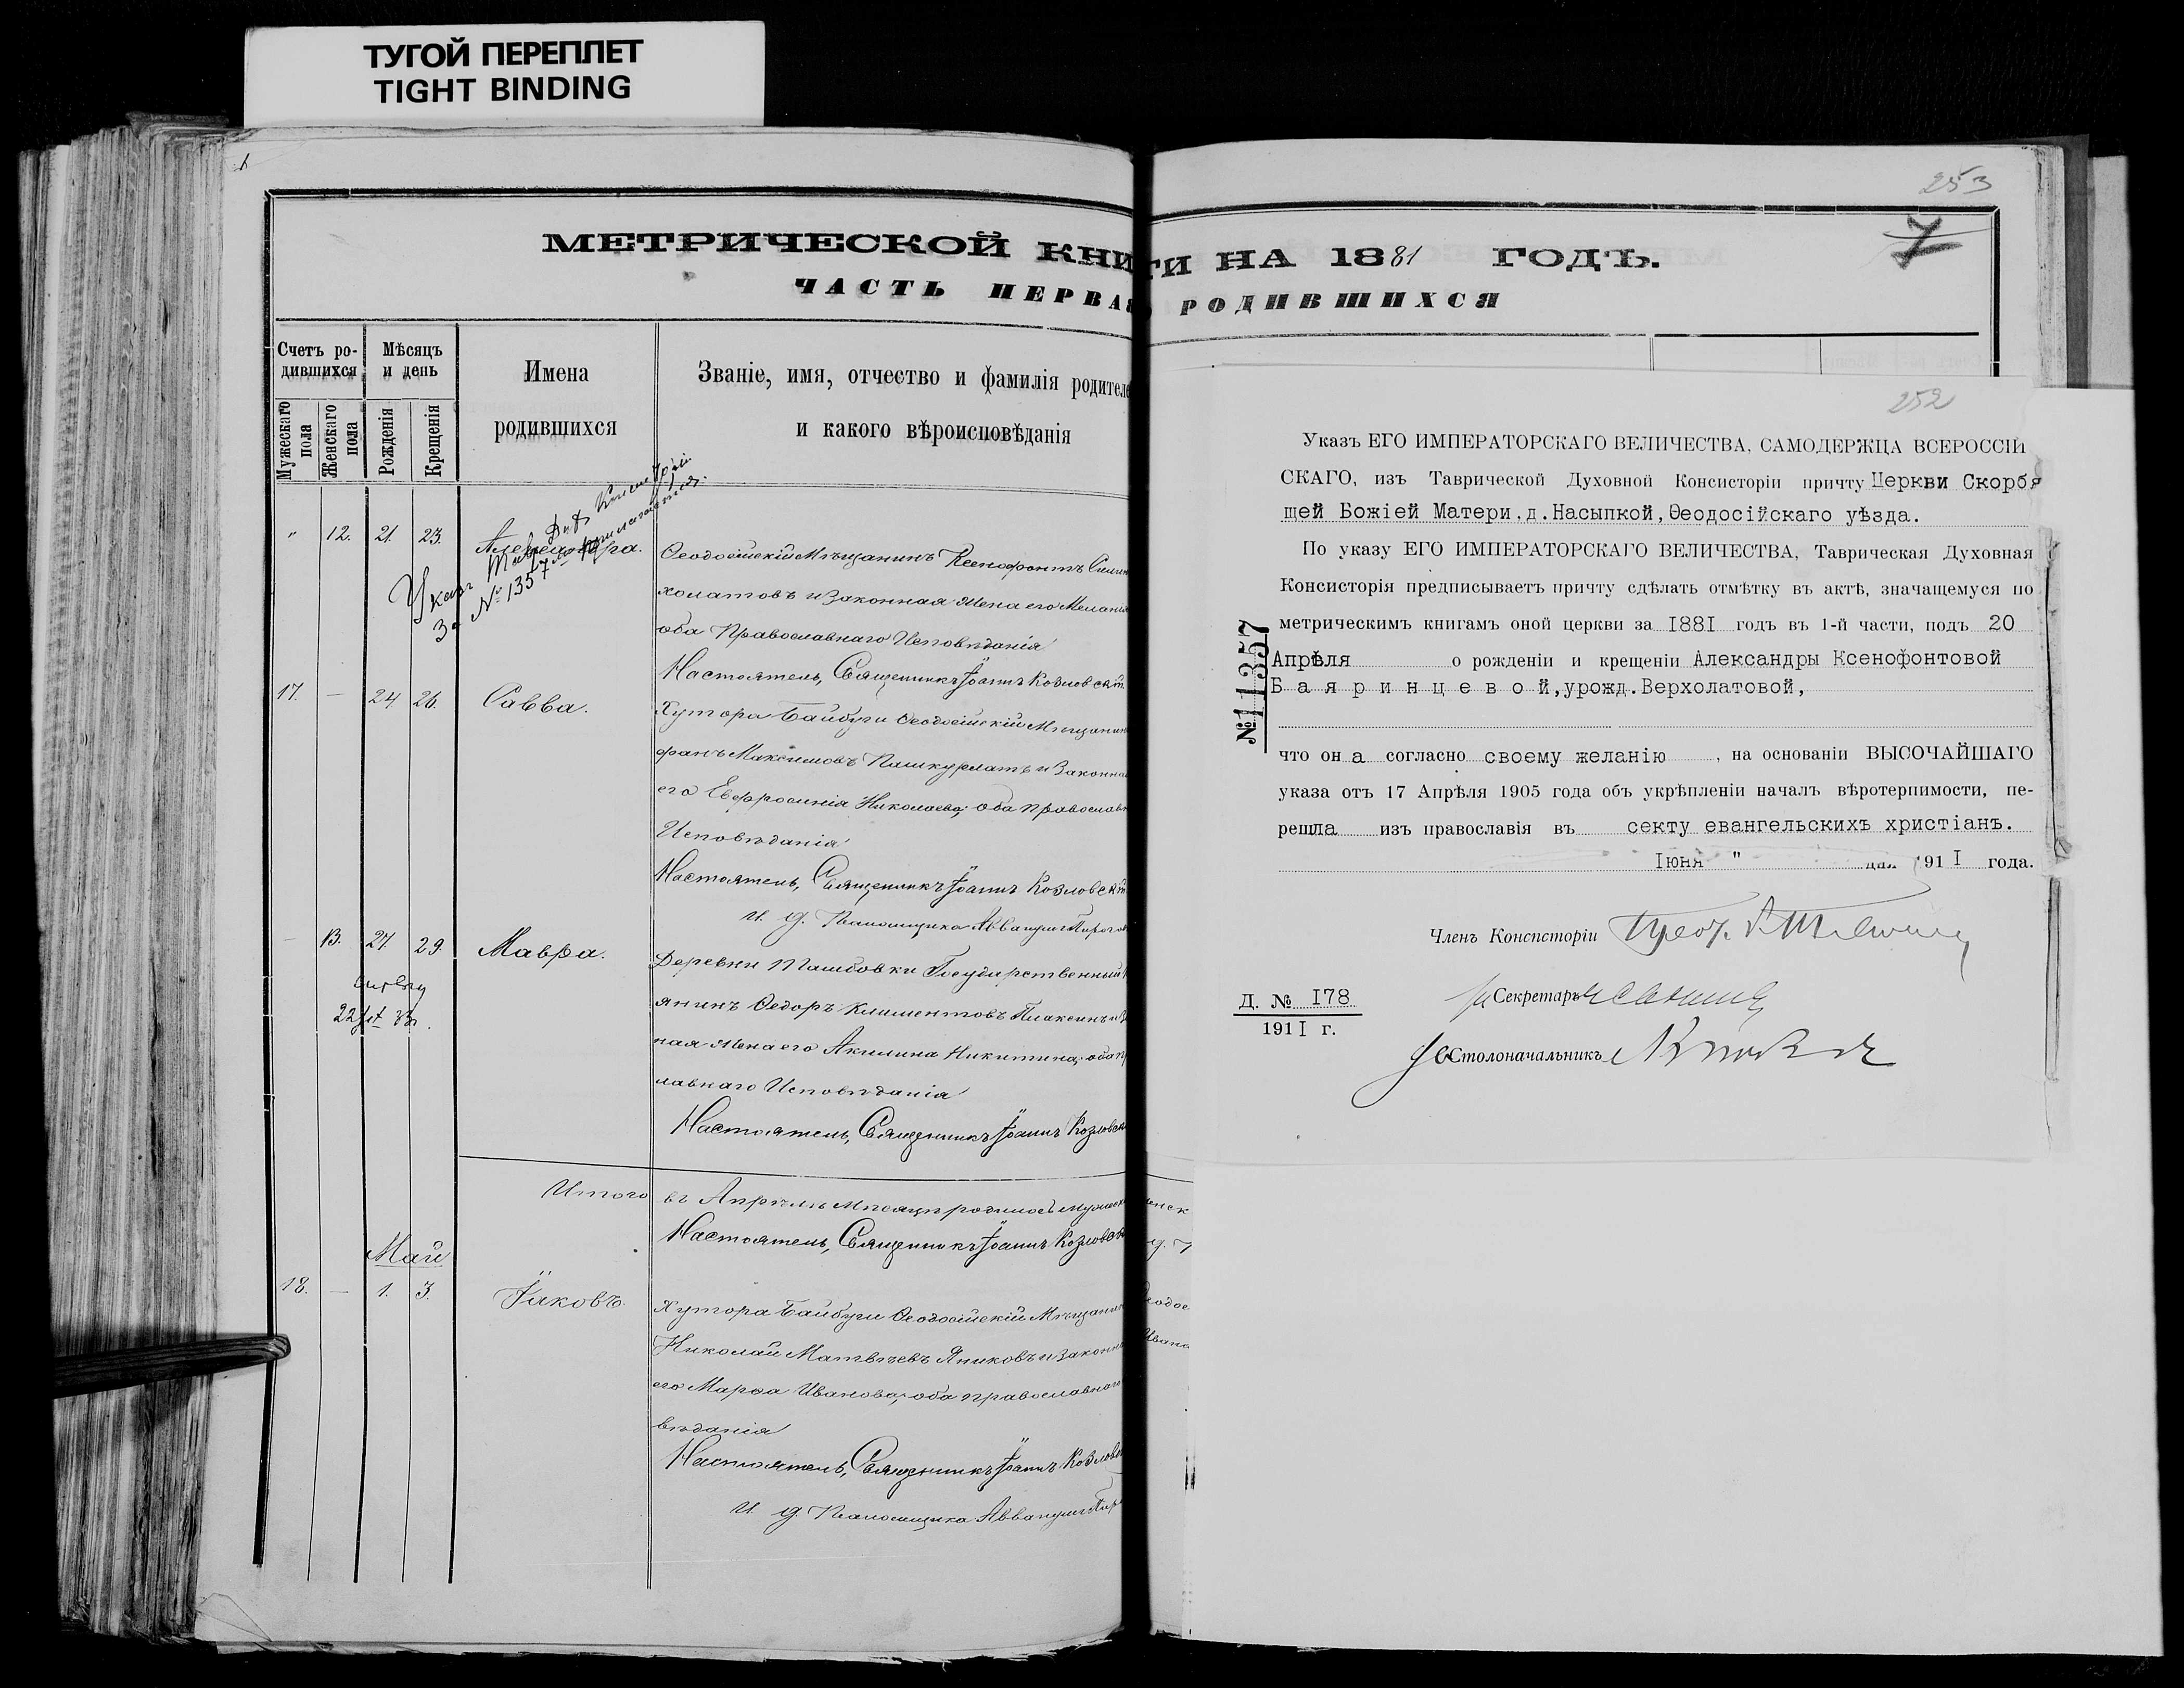 ТУГОЙ ПЕРЕПЛЕТ
TIGHT BINDING
МЕТРИЧЕСКОЙ КНИ
ЧАСТЬ ПЕРВАЯ
Счетъ ро-
дившихся
Мѣсяцъ
и день
Имена
родившихся
Званіе, имя, отчество и фамилія родителе
и какого вѣроисповѣданія
Мужескаго пола
Женскаго пола
Рожденія
Крещенія
" 12. 21. 23. Александра.
Указъ Тав. Дух. Консисторіи
За № 11357 прилагается.
Ѳеодосійскій Мѣщанинъ Ксенофонтъ
холатовъ и Законная Жена его Меланія
оба Православнаго Исповѣданія
Настоятель, Священникъ Іоаннъ Козловскій
17. — 24 26. Савва.
Хутора Байбуги Ѳеодосійскій Мѣщанин
фанъ Максимовъ и Законна
его Евфросинія Николаева, оба православн
Исповѣданія
Настоятель, Священникъ Іоаннъ Козловскій
И. д. Псаломщика
— 13. 27. 29. Мавра.
22
Деревни Ташбовки Государственный
янинъ Ѳедоръ Климентовъ Плаксинъ и З
ная Жена его Акилина Никитина, оба п
лавнаго Исповѣданія
Настоятель, Священникъ Іоаннъ Козловск
Итого въ Апрѣлѣ Мѣсяцѣ родилось мужеск
Настоятель, Священникъ Іоаннъ Козловск
Май
18. — 1. 3. Іаковъ.
Хутора Байбуги Ѳеодосійскій Мѣщанин
Николай Матвѣевъ Яниковъ и Законн
его Марѳа Иванова, оба православнаго
вѣданія
Настоятель, Священникъ Іоаннъ Козловс
И. д. Псаломщика
253
7
ГИ НА 1881 ГОДЪ.
РОДИВШИХСЯ
252
Указъ ЕГО ИМПЕРАТОРСКАГО ВЕЛИЧЕСТВА, САМОДЕРЖЦА ВСЕРОССІЙ
СКАГО, изъ Таврической Духовной Консисторіи причту Церкви Скорбя
щей Божіей Матери,д.Насыпкой,Ѳеодосійскаго уѣзда.
По указу ЕГО ИМПЕРАТОРСКАГО ВЕЛИЧЕСТВА, Таврическая Духовная
Консисторія предписываетъ причту сдѣлать отмѣтку въ актѣ, значащемуся по
метрическимъ книгамъ оной церкви за 1881 годъ въ 1-й части, подъ 20
Апрѣля о рожденіи и крещеніи Александры Ксенофонтовой
Б а я р и н ц е в о й,урожд.Верхолатовой,
№ 11357
что он а согласно своему желанію , на основаніи ВЫСОЧАЙШАГО
указа отъ 17 Апрѣля 1905 года объ укрѣпленіи началъ вѣротерпимости, пе-
решла изъ православія въ секту евангельскихъ христіанъ.
Іюня " дня 1911 года.
Членъ Консисторіи
Секретарь
Д. № 178
1911 г.
Столоначальникъ